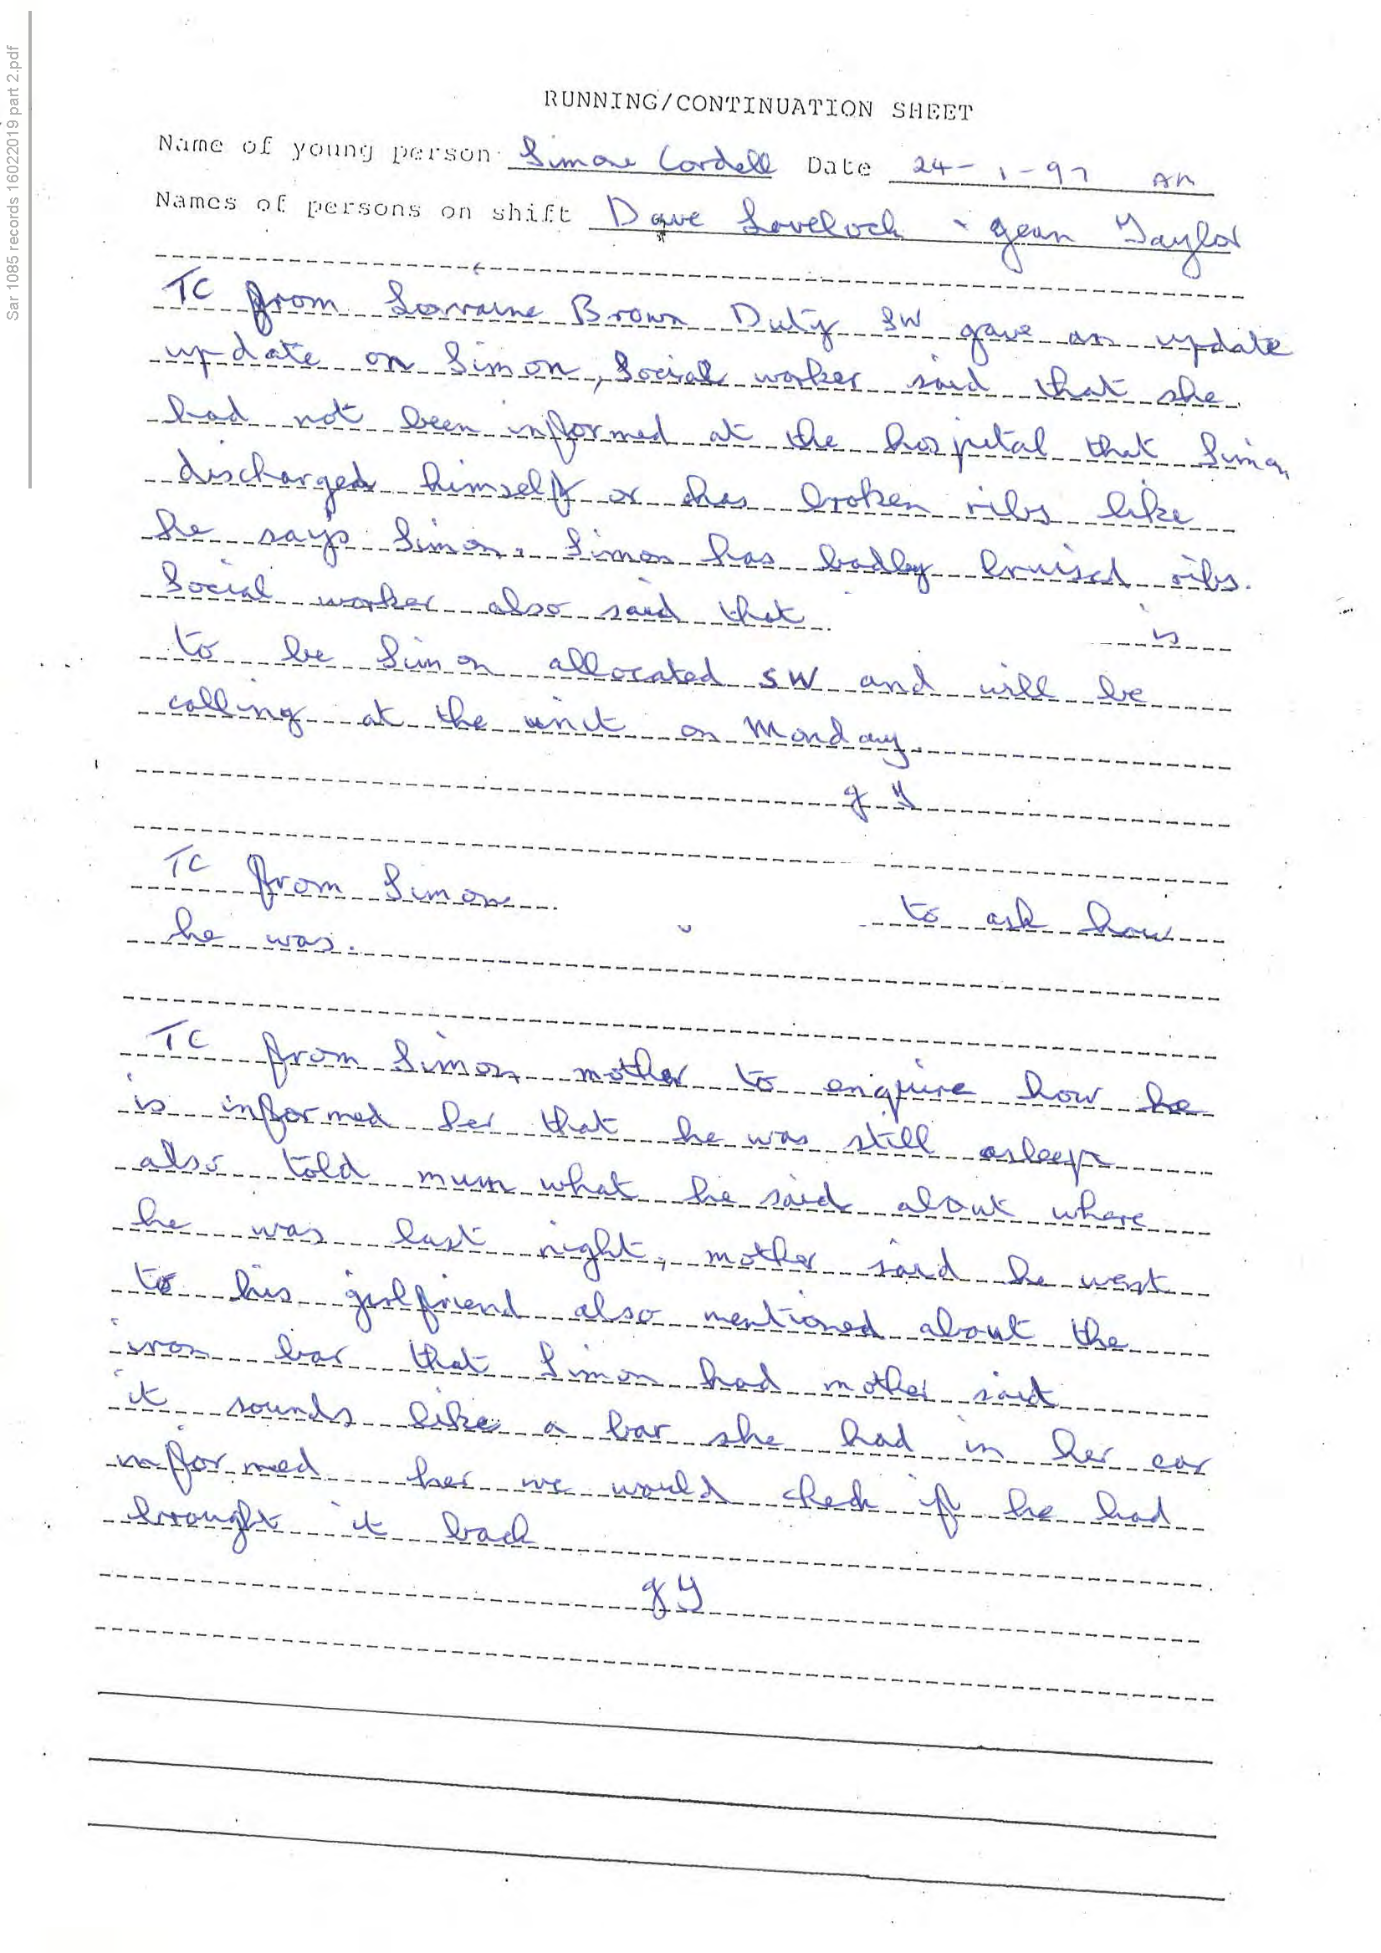 Sar 1085 records 16022019 part 2.pdf
RUNNING/CONTINUATION SHEET
Name of young person Simon Cordell Date 24-1-97 AM
Names of persons on shift Dave Lovelock - Jean Taylor
TC from Lorraine Brown Duty SW gave an update
update on Simon, Social worker said that she
had not been informed at the hospital that Simon
discharged himself or has broken ribs like
he says Simon. Simon has badly bruised ribs.
Social worker also said that is
to be Simon allocated SW and will be
calling at the unit on Monday.
JT
TC from Simon to ask how
he was.
TC from Simon mother to enquire how he
is informed her that he was still asleep
also told mum what he said about where
he was last night, mother said he went
to his girlfriend also mentioned about the
iron bar that Simon had mother said
it sounds like a bar she had in her car
informed her we would check if he had
brought it back
JT